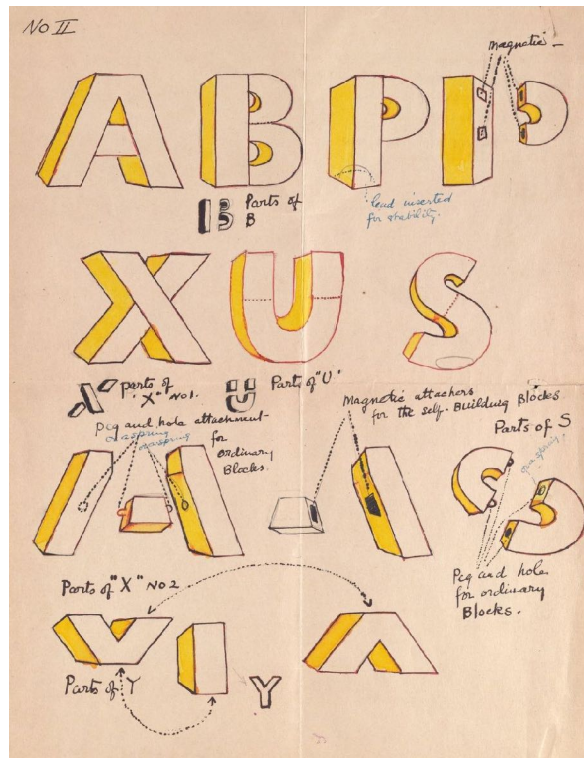 No II
magnetic
A B P
Parts of
B
lead inserted
for stability.
X U S
parts of
"X" No1.
Parts of "U"
Peg and hole attachment
for
ordinary
Blocks.
Magnetic attachers
for the self. Building Blocks
Parts of S
Peg and hole
for ordinary
Blocks.
Parts of "X" No 2
Parts of Y
Y